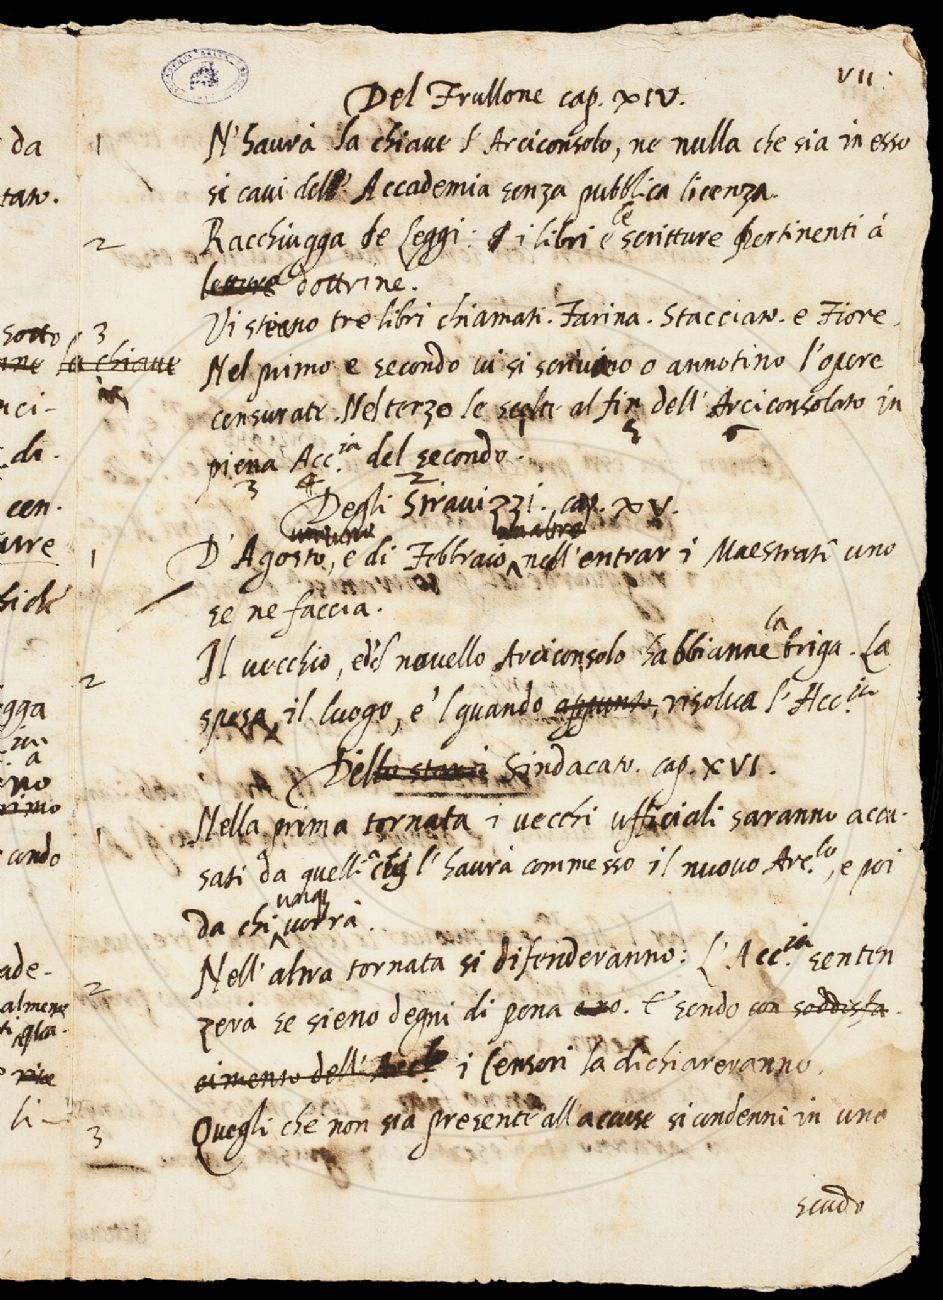 VII.
Del Frullone cap. XIV.
1 N'haurà la chiave l'Arciconsolo, ne nulla che sia in esso
si cavi dell'Accademia senza pubblica licenza.
2 Racchiugga le Leggi: i libri e le scritture pertinenti à
letture dottrine.
3 Vi stieno tre libri chiamati. Farina. Stacciato. e Fiore.
la chiave Nel primo e secondo vi si scrivino o annotino l'opere
censurate. Nel terzo le scelte al fin dell'Arciconsolato in
piena Acc.ia del secondo.
Degli Stravizzi. cap. XV.
1 D'Agosto, e di Febbraio, nell'entrar i Maestrati uno
se ne faccia.
2 Il vecchio, e'l novello Arciconsolo habbianne la briga. La
spesa, il luogo, e'l quando appunto, risolva l'Acc.ia
Dello Sindacato. cap. XVI.
1 Nella prima tornata i vecchi ufficiali saranno accu-
sati da quelli à cui l'haurà commesso il nuovo Arc.lo, e poi
da chi unque vorrà.
2 Nell'altra tornata si difenderanno: L'Acc.ia senten
zerà se sieno degni di pena o no. E sendo con soddisfa-
cimento dell'Arc.lo i Censori la dichiareranno.
3 Quegli che non sia presente all'accuse si condenni in uno
scudo